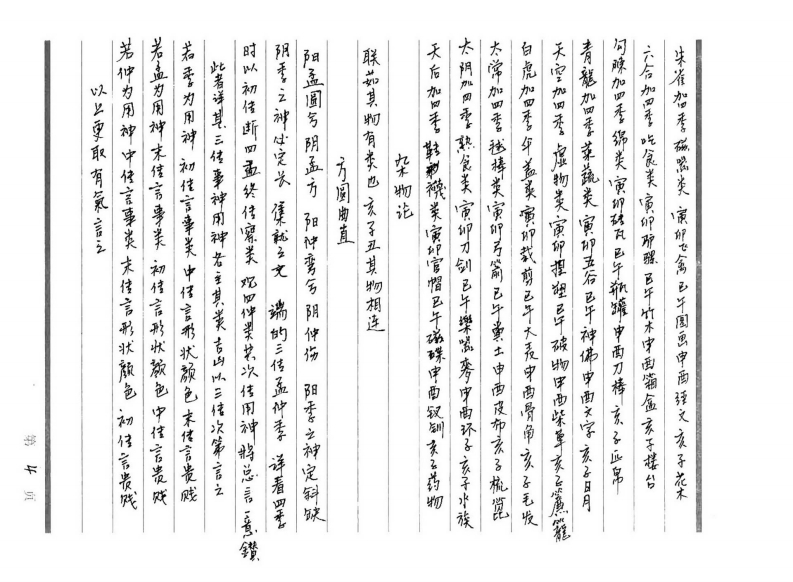 朱雀加四季磁器类 寅卯飞禽巳午图画申酉经文亥子花木
六合加四季吃食类寅卯 巳午竹木申酉箱盒亥子楼台
勾陳加四季绵类寅卯砖瓦巳午瓶罐申酉刀棒亥子疋帛
青龍加四季菜蔬类寅卯五谷巳午神佛申酉文字亥子日月
天空加四季虚物类寅卯捏塑巳午破物申酉柴草亥子簾籠
白虎加四季伞盖类寅卯裁剪巳午大麦申酉骨角亥子毛发
太常加四季毬棒类寅卯弓箭巳午粪土申酉皮布亥子梳篦
太阴加四季熟食类寅卯刀剑巳午樂器麥申酉环子亥子水族
天后加四季鞋襪类寅卯官帽巳午磁碟申酉钗钏亥子药物
杂物论
联茹其物有类也亥子丑其物相连
方圆曲直
阳孟圆兮阴孟方 阳仲弯兮阴仲伤 阳季之神定斜缺
阴季之神必定长 集就之文 端的三传孟仲季 详看四季
时以初传断四孟终传察类 观四仲类共次传用神将总言一意鑽
此者详其三传事神用神各主其类吉凶以三传次第言之
若季为用神 初传言事类 中传言形状颜色 末传言贵贱
若孟为用神 末传言事类 初传言形状颜色 中传言贵贱
若仲为用神 中传言事类 末传言形状颜色 初传言贵贱
以上更取有氣言之
第 4 页